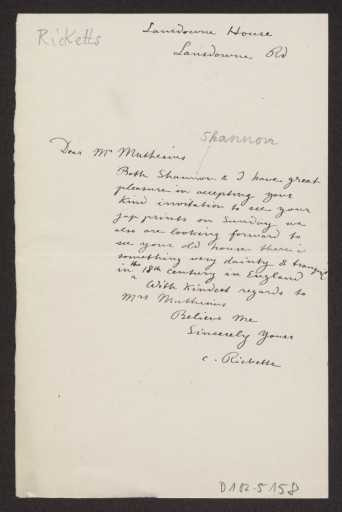 Ricketts
Lansdowne House
Lansdowne Rd
Shannon
Dear Mr Muthesius
Both Shannon & I have great
pleasure in accepting your
kind invitation to see your
jap prints on Sunday we
also are looking forward to
see your old house there is
something very dainty & tranquil
in the 18th century in England
With kindest regards to
Mrs Muthesius
Believe me
Sincerely Yours
C. Ricketts
D102-5158